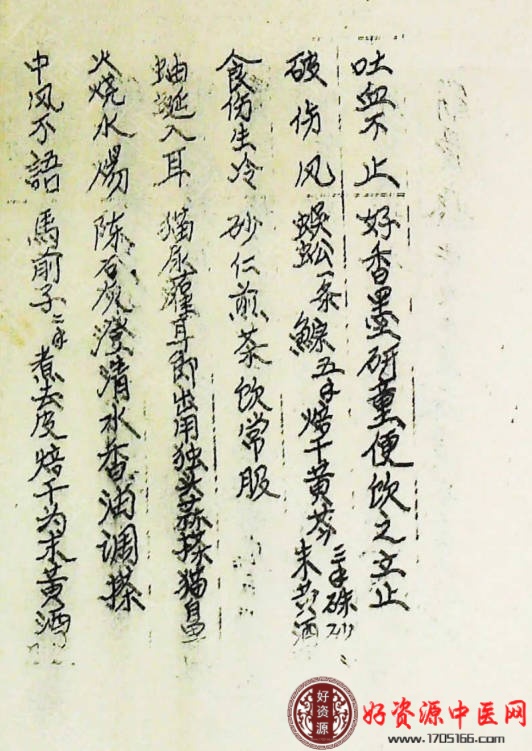 吐血不止 好香墨研童便饮之立止
破伤风 蜈蚣一条鰾五个焙干黄芩三个硃砂末黄酒
食伤生冷 砂仁煎茶饮常服
蚰蜒入耳 猫尿灌耳即出用独头蒜搽猫鼻
火烧水烫 陈石灰澄清水香油调搽
中风不語 馬前子二个煮去皮焙干为末黄酒
好资源
好资源中医网
www.1705166.com